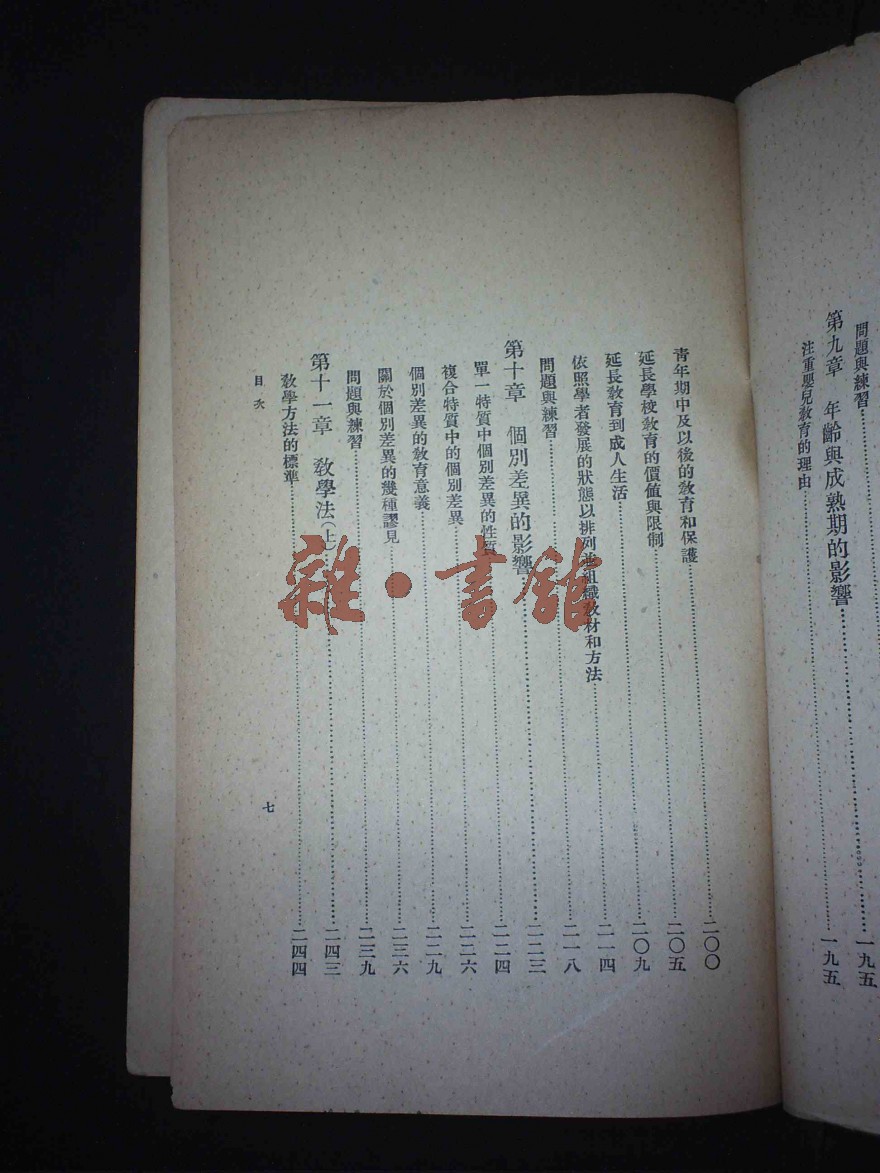 問題與練習
第九章 年齡與成熟期的影響……一九五
注重嬰兒教育的理由……一九五
青年期中及以後的教育和保護……二〇〇
延長學校教育的價値與限制……二〇五
延長教育到成人生活……二〇九
依照學者發展的狀態以排列並組織教材和方法……二一四
問題與練習……二一八
第十章 個別差異的影響……二二三
單一特質中個別差異的性質……二二四
複合特質中的個別差異……二二六
個別差異的教育意義……二二九
關於個別差異的幾種謬見……二三六
問題與練習……二三九
第十一章 教學法(上)……二四三
教學方法的標準……二四四
目次
七
雜·書館